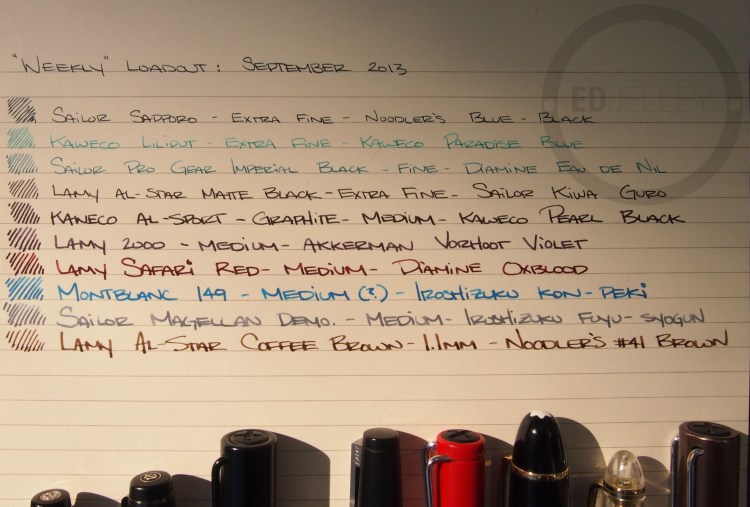 "WEEKLY" LOADOUT: SEPTEMBER 2013
EDJELLEY
SAILOR SAPPORO - EXTRA FINE - NOODLER'S BLUE-BLACK
KAWECO LILIPUT - EXTRA FINE - KAWECO PARADISE BLUE
SAILOR PRO GEAR IMPERIAL BLACK - FINE - DIAMINE EAU DE NIL
LAMY AL-STAR MATTE BLACK - EXTRA FINE - SAILOR KIWA GURO
KAWECO AL-SPORT - GRAPHITE - MEDIUM - KAWECO PEARL BLACK
LAMY 2000 - MEDIUM - AKKERMAN VORHOOT VIOLET
LAMY SAFARI RED - MEDIUM - DIAMINE OXBLOOD
MONTBLANC 149 - MEDIUM (?) - IROSHIZUKU KON-PEKI
SAILOR MAGELLAN DEMO. - MEDIUM - IROSHIZUKU FUYU-SYOGUN
LAMY AL-STAR COFFEE BROWN - 1.1MM - NOODLER'S #41 BROWN